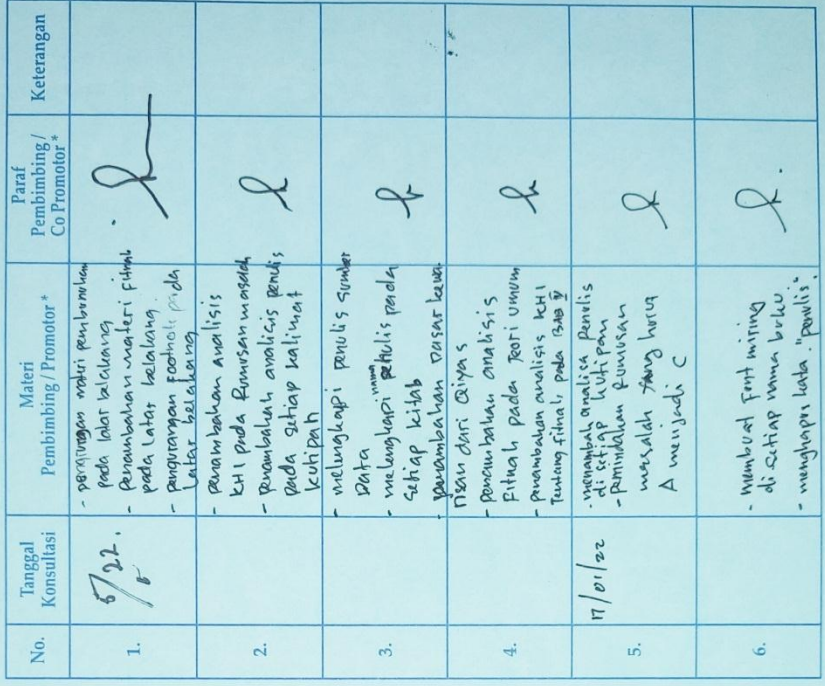 No.
Tanggal
Konsultasi
Materi
Pembimbing / Promotor *
Paraf
Pembimbing /
Co Promotor *
Keterangan
1.
- pengurangan materi pembunuhan
pada latar belakang
- Penambahan materi Fitnah
pada Latar belakang.
- pengurangan Footnote pada
Latar belakang
2.
- penambahan analisis
KHI pada Rumusan masalah
- penambahan analisis penulis
pada setiap kalimat
kutipan
3.
- melengkapi penulis sumber
Data
- melengkapi nama penulis pada
setiap kitab
- penambahan Dasar
4.
dari Qiyas
- penambahan analisis
Fitnah pada Teori umum
- penambahan analisis KHI
Tentang fitnah pada BAB IV
5.
17/01/22
- menambah analisa penulis
di setiap kutipan
- Pemindahan Rumusan
masalah yang
A menjadi C
6.
- membuat Font miring
di setiap nama buku.
- menghapus kata "penulis".